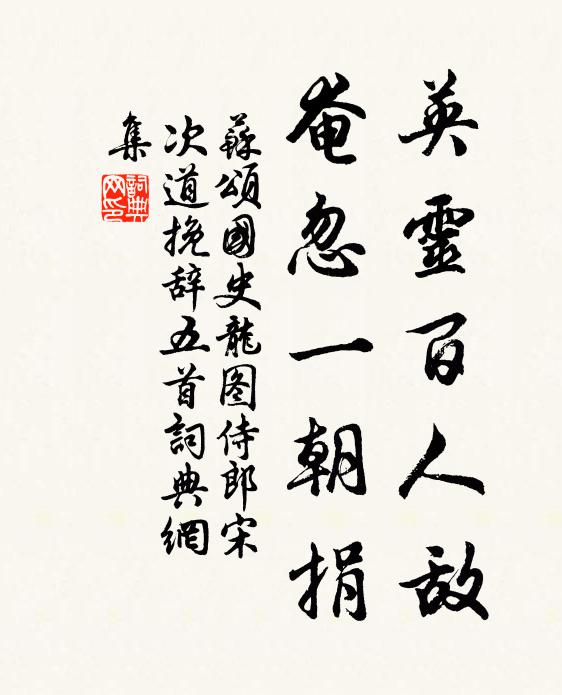 英靈百人敌
奄忽一朝捐
蘇頌國史龍图侍郎宋
次道挽辞五首詞典網
集
詞典
网印